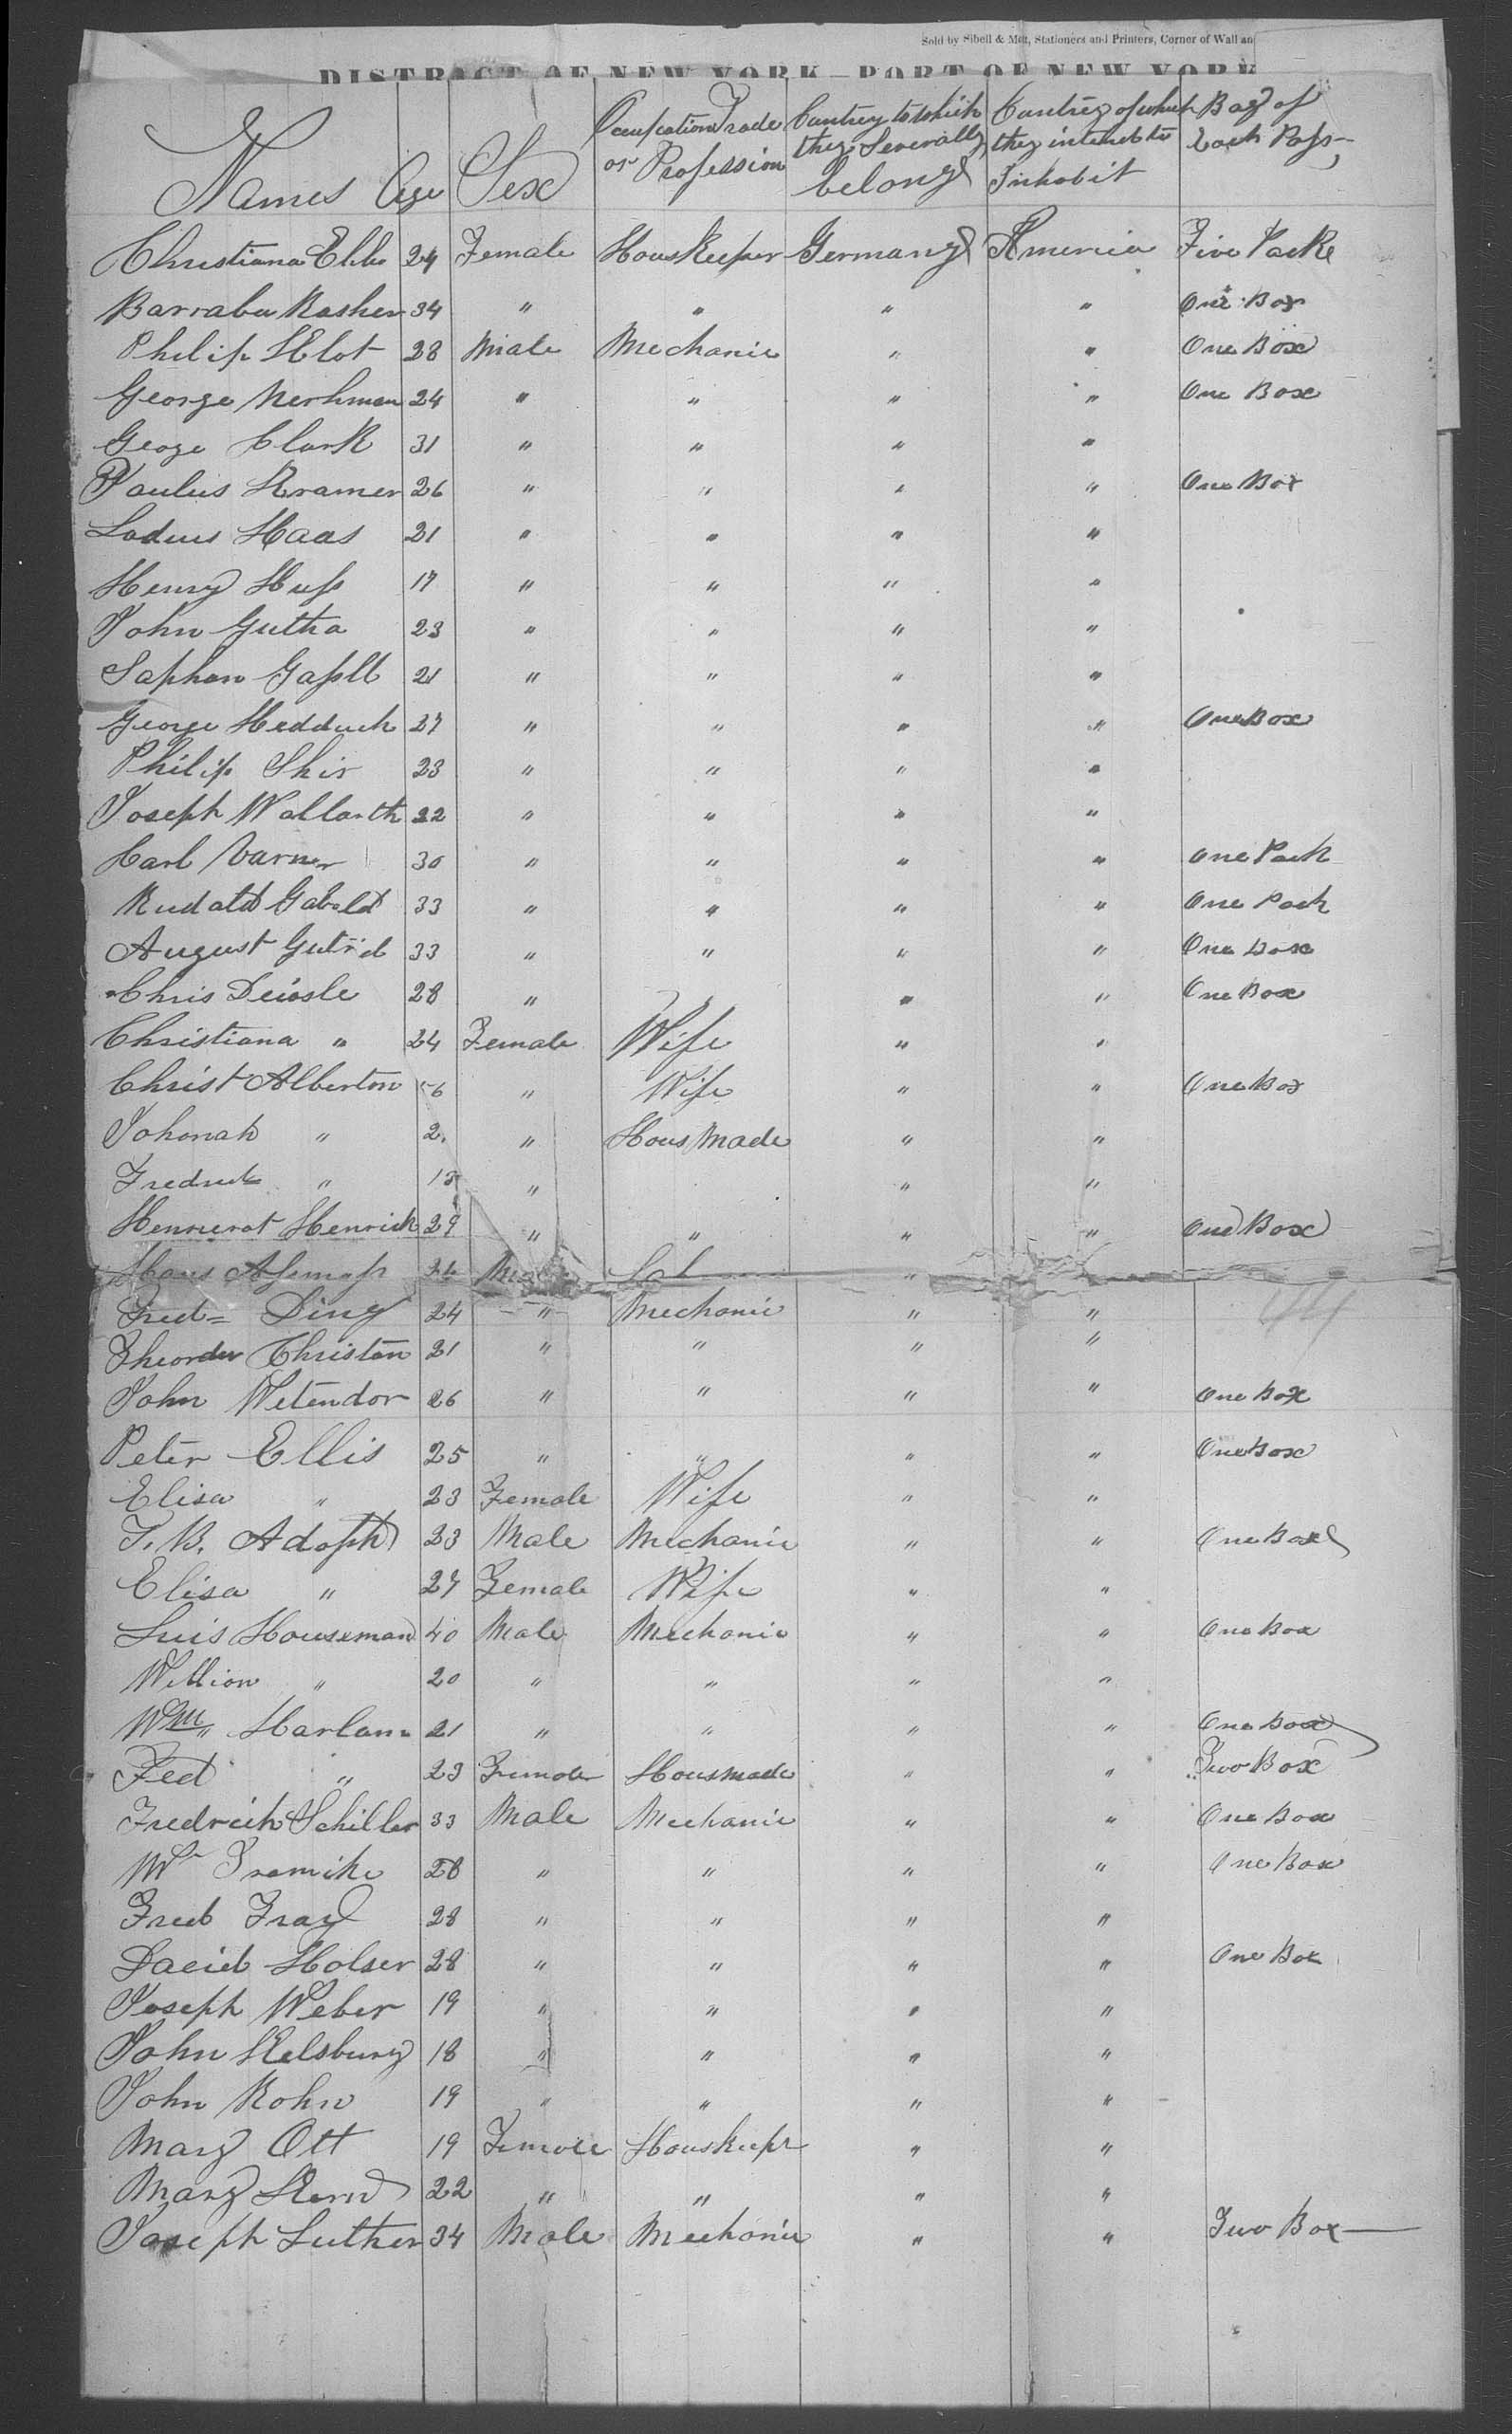 Sold by Sibell & Mott, Stationers and Printers, Corner of Wall an
DISTRICT OF NEW YORK—PORT OF NEW YORK
Names Age Sex Occupation Trade or Profession Cuntrey to which they Severally belong Cuntrey of which they intend to Inhabit Bag of Each Pass
Christiana 24 Female HousKeeper Germany America Five Packe
Barraba Rasher 34 " " " " One Box
Philip Klot 28 Male Mechanic " " One Box
George Nerhman 24 " " " " One Box
Geoge Clark 31 " " " "
Paulus Kramer 26 " " " " One Box
Haas 21 " " " "
Henry Huss 17 " " " "
John Gutha 23 " " " "
Saphan 21 " " " "
George Hedduch 27 " " " " One Box
Philip Shir 23 " " " "
Joseph Wallarth 22 " " " "
Carl Varner 30 " " " " One Pack
Rudald Gabold 33 " " " " One Pack
August 33 " " " " One Box
Chris Deiosle 28 " " " " One Box
Christiana " 24 Female Wife " "
Christ Alberton 56 " Wife " " One Box
Johonah " 2 " Hous Made " "
" 13 " " "
Henrich 29 " " " " One Box
Hans "
Fred= Ding 24 " Mechanic " "
Christan 21 " " " "
John Wetendor 26 " " " " One Box
Peter Ellis 25 " " " " One Box
Elisa " 23 Female Wife " "
J. B. Adolph 23 Male Mechanic " " One Box
Elisa " 27 Female Wife " "
Luis Houseman 40 Male Mechanic " " One Box
Willion " 20 " " " "
Wm Harlan 21 " " " " One Box
Fed " 23 Female Housmade " " Two Box
Fredreich Schiller 33 Male Mechanic " " One Box
Wm Tramike 28 " " " " One Box
Fred Fray 28 " " " "
David Holser 28 " " " " One Box
Joseph Weber 19 " " " "
John Kelsburg 18 " " " "
John Kohn 19 " " " "
Mary Ott 19 Female Houskeepr " "
Mary Kern 22 " " " "
Joseph Luther 34 Male Mechanic " " Two Box